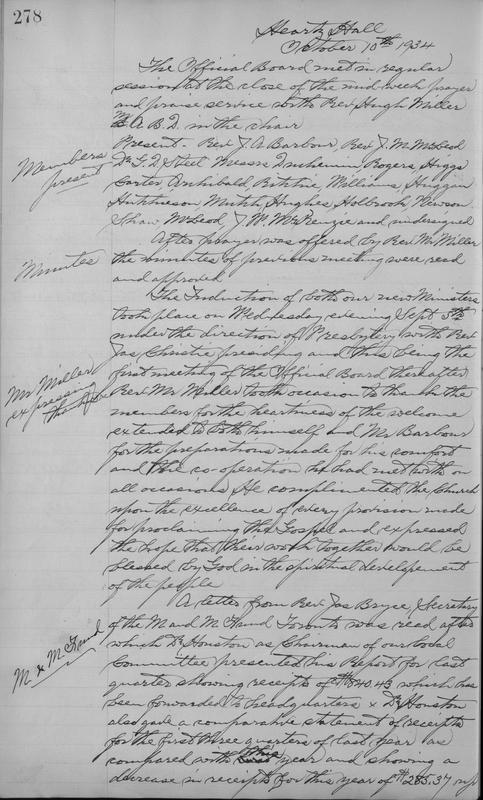 278
Heartz Hall
October 10th 1934
The Official Board met in regular
session at the close of the mid week prayer
and praise service with Rev Hugh Miller
M.A. B.D. in the chair
Members present
Present - Rev J. A. Barbour, Rev J. M. McLeod
Dr Steel Messrs Rogers, Higgs
Carter, Archibald, Ritchie, Williams, Huggan
Hutcheson Mutch, Hughes Holbrook Newson
Shaw McLeod J. W. McKenzie and undersigned
After prayer was offered by Rev Mr Miller
Minutes
the minutes of previous meeting were read
and approved
The Induction of both our new Ministers
took place on Wednesday evening Sept 5th
under the direction of Presbytery with Rev
Jas Christie presiding and this being the
first meeting of the Official Board thereafter
Mr Miller expressing thanks
Rev Mr Miller took occasion to thank the
members for the heartiness of the welcome
extended to both himself and Mr Barbour
for the preparations made for his comfort
and the co-operation he had met with on
all occasions He complimented the Church
upon the excellence of every provision made
for proclaiming the Gospel and expressed
the hope that their work together would be
blessed by God in the spiritual developement
of the people
A letter from Rev Jas Bryce, Secretary
M & M Fund
of the M and M Fund Toronto was read after
which Dr Houston as Chairman of our Local
Committee presented his Report for last
quarter showing receipts of $840.43 which has
been forwarded to headquarters & Dr Houston
also gave a comparative statement of receipts
for the first three quarters of last year as
compared with this year and showing a
decrease in receipts for this year of $285.37